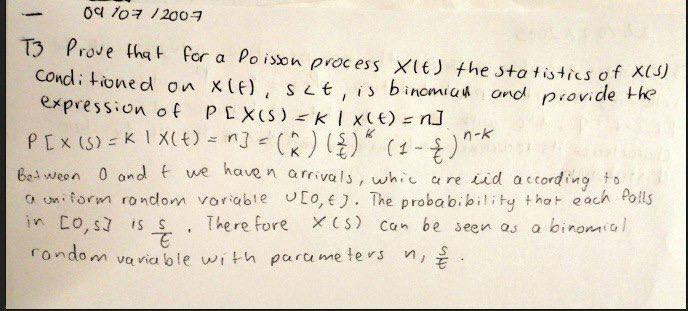 — 04/07/2007
T3 Prove that for a Poisson process X(t) the statistics of X(s)
conditioned on X(t), s<t, is binomial and provide the
expression of P[X(s)=K | X(t)=n]
P[X(s)=K | X(t)=n] = (n K) (s/t)^K (1-s/t)^n-K
Between 0 and t we have n arrivals, whic are iid according to
a uniform random variable U[0,t]. The probabibility that each falls
in [0,s] is s/t. Therefore X(s) can be seen as a binomial
random variable with parameters n, s/t.